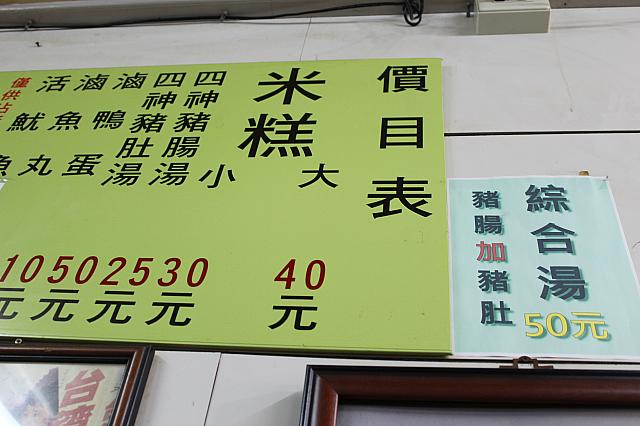 價目表
米糕 大 40元
小 30元
四神豬腸湯 25元
四神豬肚湯 50元
滷鴨蛋 10元
滷魚丸
活魷魚
僅供
綜合湯
50元
豬腸加豬肚
台灣